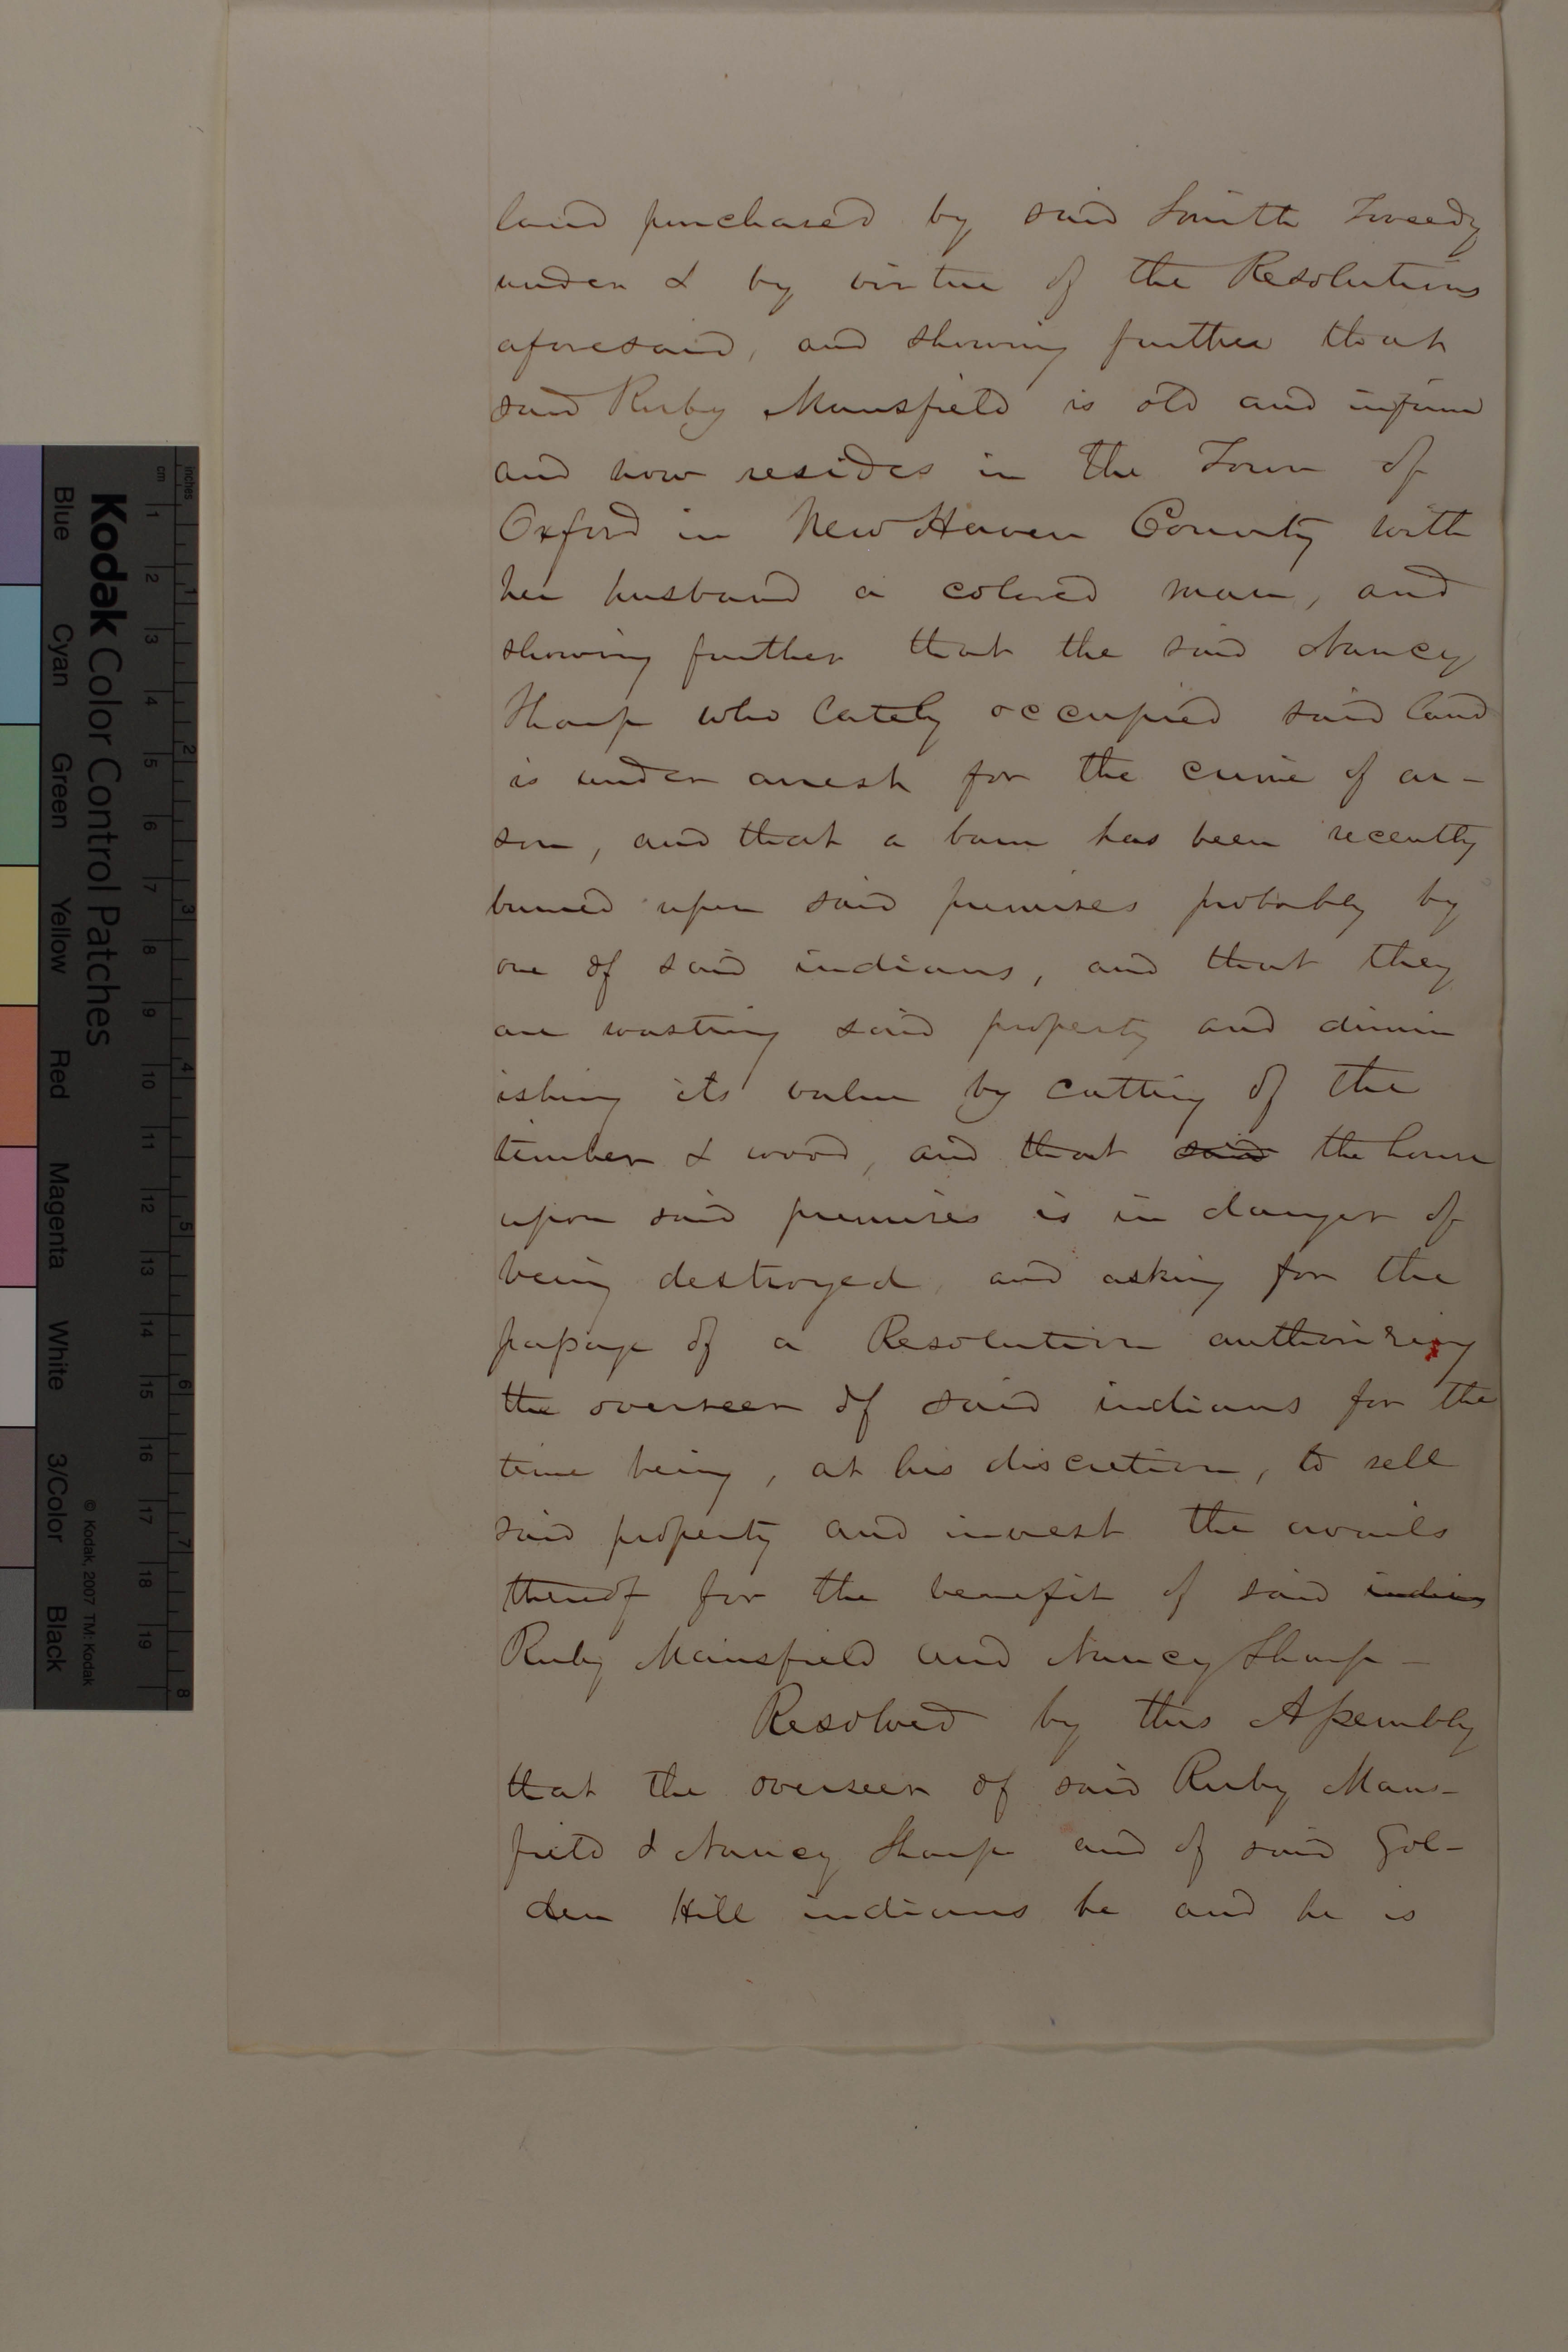 land purchased by said Smith Tweedy
under & by virtue of the Resolutions
aforesaid, and showing further that
said Ruby Mansfield is old and infirm
and now resides in the Town of
Oxford in New Haven County with
her husband a colored man, and
showing further that the said Nancy
Sharp who lately occupied said land
is under arrest for the crime of ar-
son, and that a barn has been recently
burned upon said premises probably by
one of said indians, and that they
are wasting said property and dimin
ishing its value by cutting of the
timber & wood, and that said the house
upon said premises is in danger of
being destroyed, and asking for the
passage of a Resolution authorizing
the overseer of said indians for the
time being, at his discretion, to sell
said property and invest the avails
thereof for the benefit of said indians
Ruby Mansfield and Nancy Sharp —
Resolved by this Assembly
that the overseer of said Ruby Mans-
field & Nancy Sharp and of said Gol-
den Hill indians be and he is
Kodak Color Control Patches
Blue Cyan Green Yellow Red Magenta White 3/Color Black
© Kodak, 2007 TM: Kodak
inches 1 2 3 4 5 6 7 8
cm 1 2 3 4 5 6 7 8 9 10 11 12 13 14 15 16 17 18 19